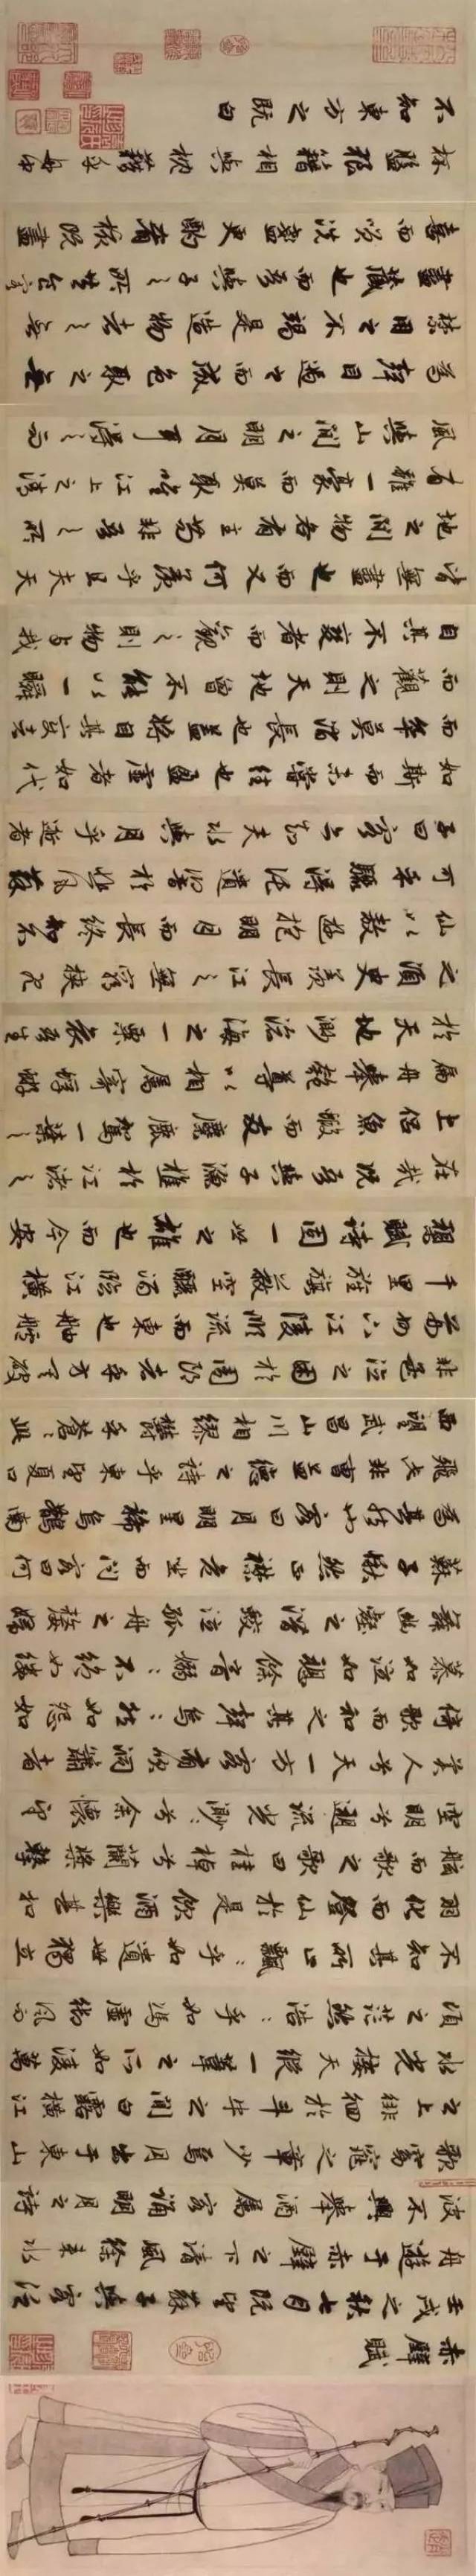 赤壁賦
壬戌之秋七月既望蘇子與客泛
舟遊于赤壁之下清風徐來水
波不興舉酒屬客誦明月之詩
歌窈窕之章少焉月出于東山
之上徘徊於斗牛之間白露橫江
水光接天縱一葦之所如凌萬
頃之茫然浩浩乎如馮虛御風而
不知其所止飄飄乎如遺世獨立
羽化而登仙於是飲酒樂甚扣
舷而歌之歌曰桂棹兮蘭槳擊
空明兮遡流光渺渺兮余懷望
美人兮天一方客有吹洞簫者
倚歌而和之其聲嗚嗚如怨如
慕如泣如訴餘音嫋嫋不絕如縷
舞幽壑之潛蛟泣孤舟之嫠婦
蘇子愀然正襟危坐而問客曰何
為其然也客曰月明星稀烏鵲南
飛此非曹孟德之詩乎東望夏口
西望武昌山川相繆鬱乎蒼蒼此
非孟德之困於周郎者乎方其破
荊州下江陵順流而東也舳艫
千里旌旗蔽空釃酒臨江橫
槊賦詩固一世之雄也而今安
在哉況吾與子漁樵於江渚之
上侶魚蝦而友麋鹿駕一葉之
扁舟舉匏尊以相屬寄蜉蝣
於天地渺滄海之一粟哀吾生
之須臾羨長江之無窮挾飛
仙以遨遊抱明月而長終知不
可乎驟得託遺響於悲風蘇
子曰客亦知夫水與月乎逝者
如斯而未嘗往也盈虛者如代
而卒莫消長也蓋將自其變者
而觀之則天地曾不能以一瞬
自其不變者而觀之則物與我
皆無盡也而又何羨乎且夫天
地之間物各有主苟非吾之所
有雖一毫而莫取惟江上之清
風與山間之明月耳得之而
為聲目遇之而成色取之無
禁用之不竭是造物者之無
盡藏也而吾與子之所共食客
喜而笑洗盞更酌肴核既盡
杯盤狼籍相與枕藉乎舟中
不知東方之既白